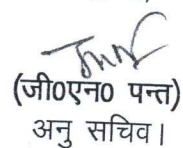 (जी०एन० पन्त)
अनु सचिव।